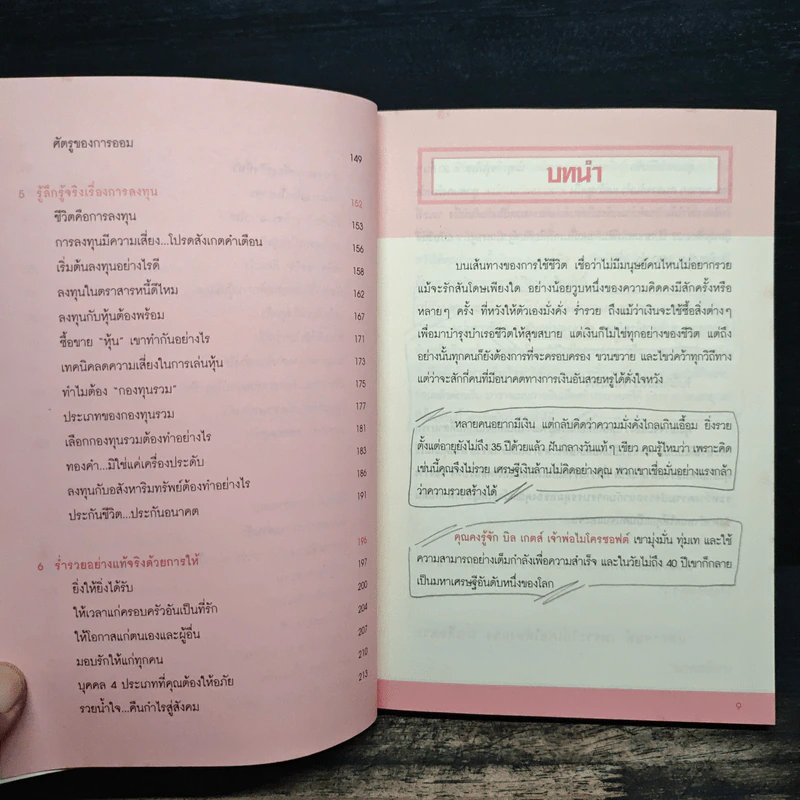 ศัตรูของการออม 149
5 รู้ลึกรู้จริงเรื่องการลงทุน 152
ชีวิตคือการลงทุน 153
การลงทุนมีความเสี่ยง...โปรดสังเกตคำเตือน 156
เริ่มต้นลงทุนอย่างไรดี 158
ลงทุนในตราสารหนี้ดีไหม 162
ลงทุนกับหุ้นต้องพร้อม 167
ซื้อขาย "หุ้น" เขาทำกันอย่างไร 171
เทคนิคลดความเสี่ยงในการเล่นหุ้น 173
ทำไมต้อง "กองทุนรวม" 175
ประเภทของกองทุนรวม 177
เลือกกองทุนรวมต้องทำอย่างไร 181
ทองคำ...มิใช่แค่เครื่องประดับ 183
ลงทุนกับอสังหาริมทรัพย์ต้องทำอย่างไร 186
ประกันชีวิต...ประกันอนาคต 191
6 ร่ำรวยอย่างแท้จริงด้วยการให้ 196
ยิ่งให้ยิ่งได้รับ 197
ให้เวลาแก่ครอบครัวอันเป็นที่รัก 200
ให้โอกาสแก่ตนเองและผู้อื่น 204
มอบรักให้แก่ทุกคน 207
บุคคล 4 ประเภทที่คุณต้องให้อภัย 210
รวยน้ำใจ...คืนกำไรสู่สังคม 213
บทนำ
บนเส้นทางของการใช้ชีวิต เชื่อว่าไม่มีมนุษย์คนไหนไม่อยากรวย
แม้จะรักสันโดษเพียงใด อย่างน้อยวูบหนึ่งของความคิดคงมีสักครั้งหรือ
หลายๆ ครั้ง ที่หวังให้ตัวเองมั่งคั่ง ร่ำรวย ถึงแม้ว่าเงินจะใช้ซื้อสิ่งต่างๆ
เพื่อมาบำรุงบำเรอชีวิตให้สุขสบาย แต่เงินก็ไม่ใช่ทุกอย่างของชีวิต แต่ถึง
อย่างนั้นทุกคนก็ยังต้องการที่จะครอบครอง ขวนขวาย และไขว่คว้าทุกวิถีทาง
แต่ว่าจะสักกี่คนที่มีอนาคตทางการเงินอันสวยหรูได้ดั่งใจหวัง
หลายคนอยากมีเงิน แต่กลับคิดว่าความมั่งคั่งไกลเกินเอื้อม ยิ่งรวย
ตั้งแต่อายุยังไม่ถึง 35 ปีด้วยแล้ว ฝันกลางวันแท้ๆ เชียว คุณรู้ไหมว่า เพราะคิด
เช่นนี้คุณจึงไม่รวย เศรษฐีเงินล้านไม่คิดอย่างคุณ พวกเขาเชื่อมั่นอย่างแรงกล้า
ว่าความรวยสร้างได้
คุณคงรู้จัก บิล เกตส์ เจ้าพ่อไมโครซอฟต์ เขามุ่งมั่น ทุ่มเท และใช้
ความสามารถอย่างเต็มกำลังเพื่อความสำเร็จ และในวัยไม่ถึง 40 ปีเขาก็กลาย
เป็นมหาเศรษฐีอันดับหนึ่งของโลก
9